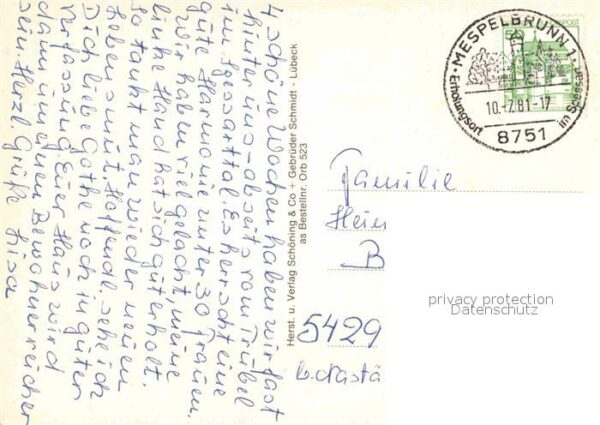 4 schöne Wochen haben wir fast
hinter uns - abseits vom Trubel
im Spessarttal. Es herrscht eine
gute Harmonie unter 30 Frauen.
Wir haben viel gelacht, meine
linke Hand hat sich gut erholt.
So tankt man wieder neuen
Lebensmut. Hoffende seh ich
Dich liebe Gothe noch in guter
Verfassung. Euer Haus wird
dann um einen Bewohner reicher
sein. Herzl. Grüße Lisa
Herst. u. Verlag Schöning & Co + Gebrüder Schmidt - Lübeck
as Bestellnr. Orb 523
MESPELBRUNN 1
Erholungsort im Spessart
10.-7.81-17
8751
50
Familie
Hein
B
5429
b. Nastä
privacy protection
Datenschutz